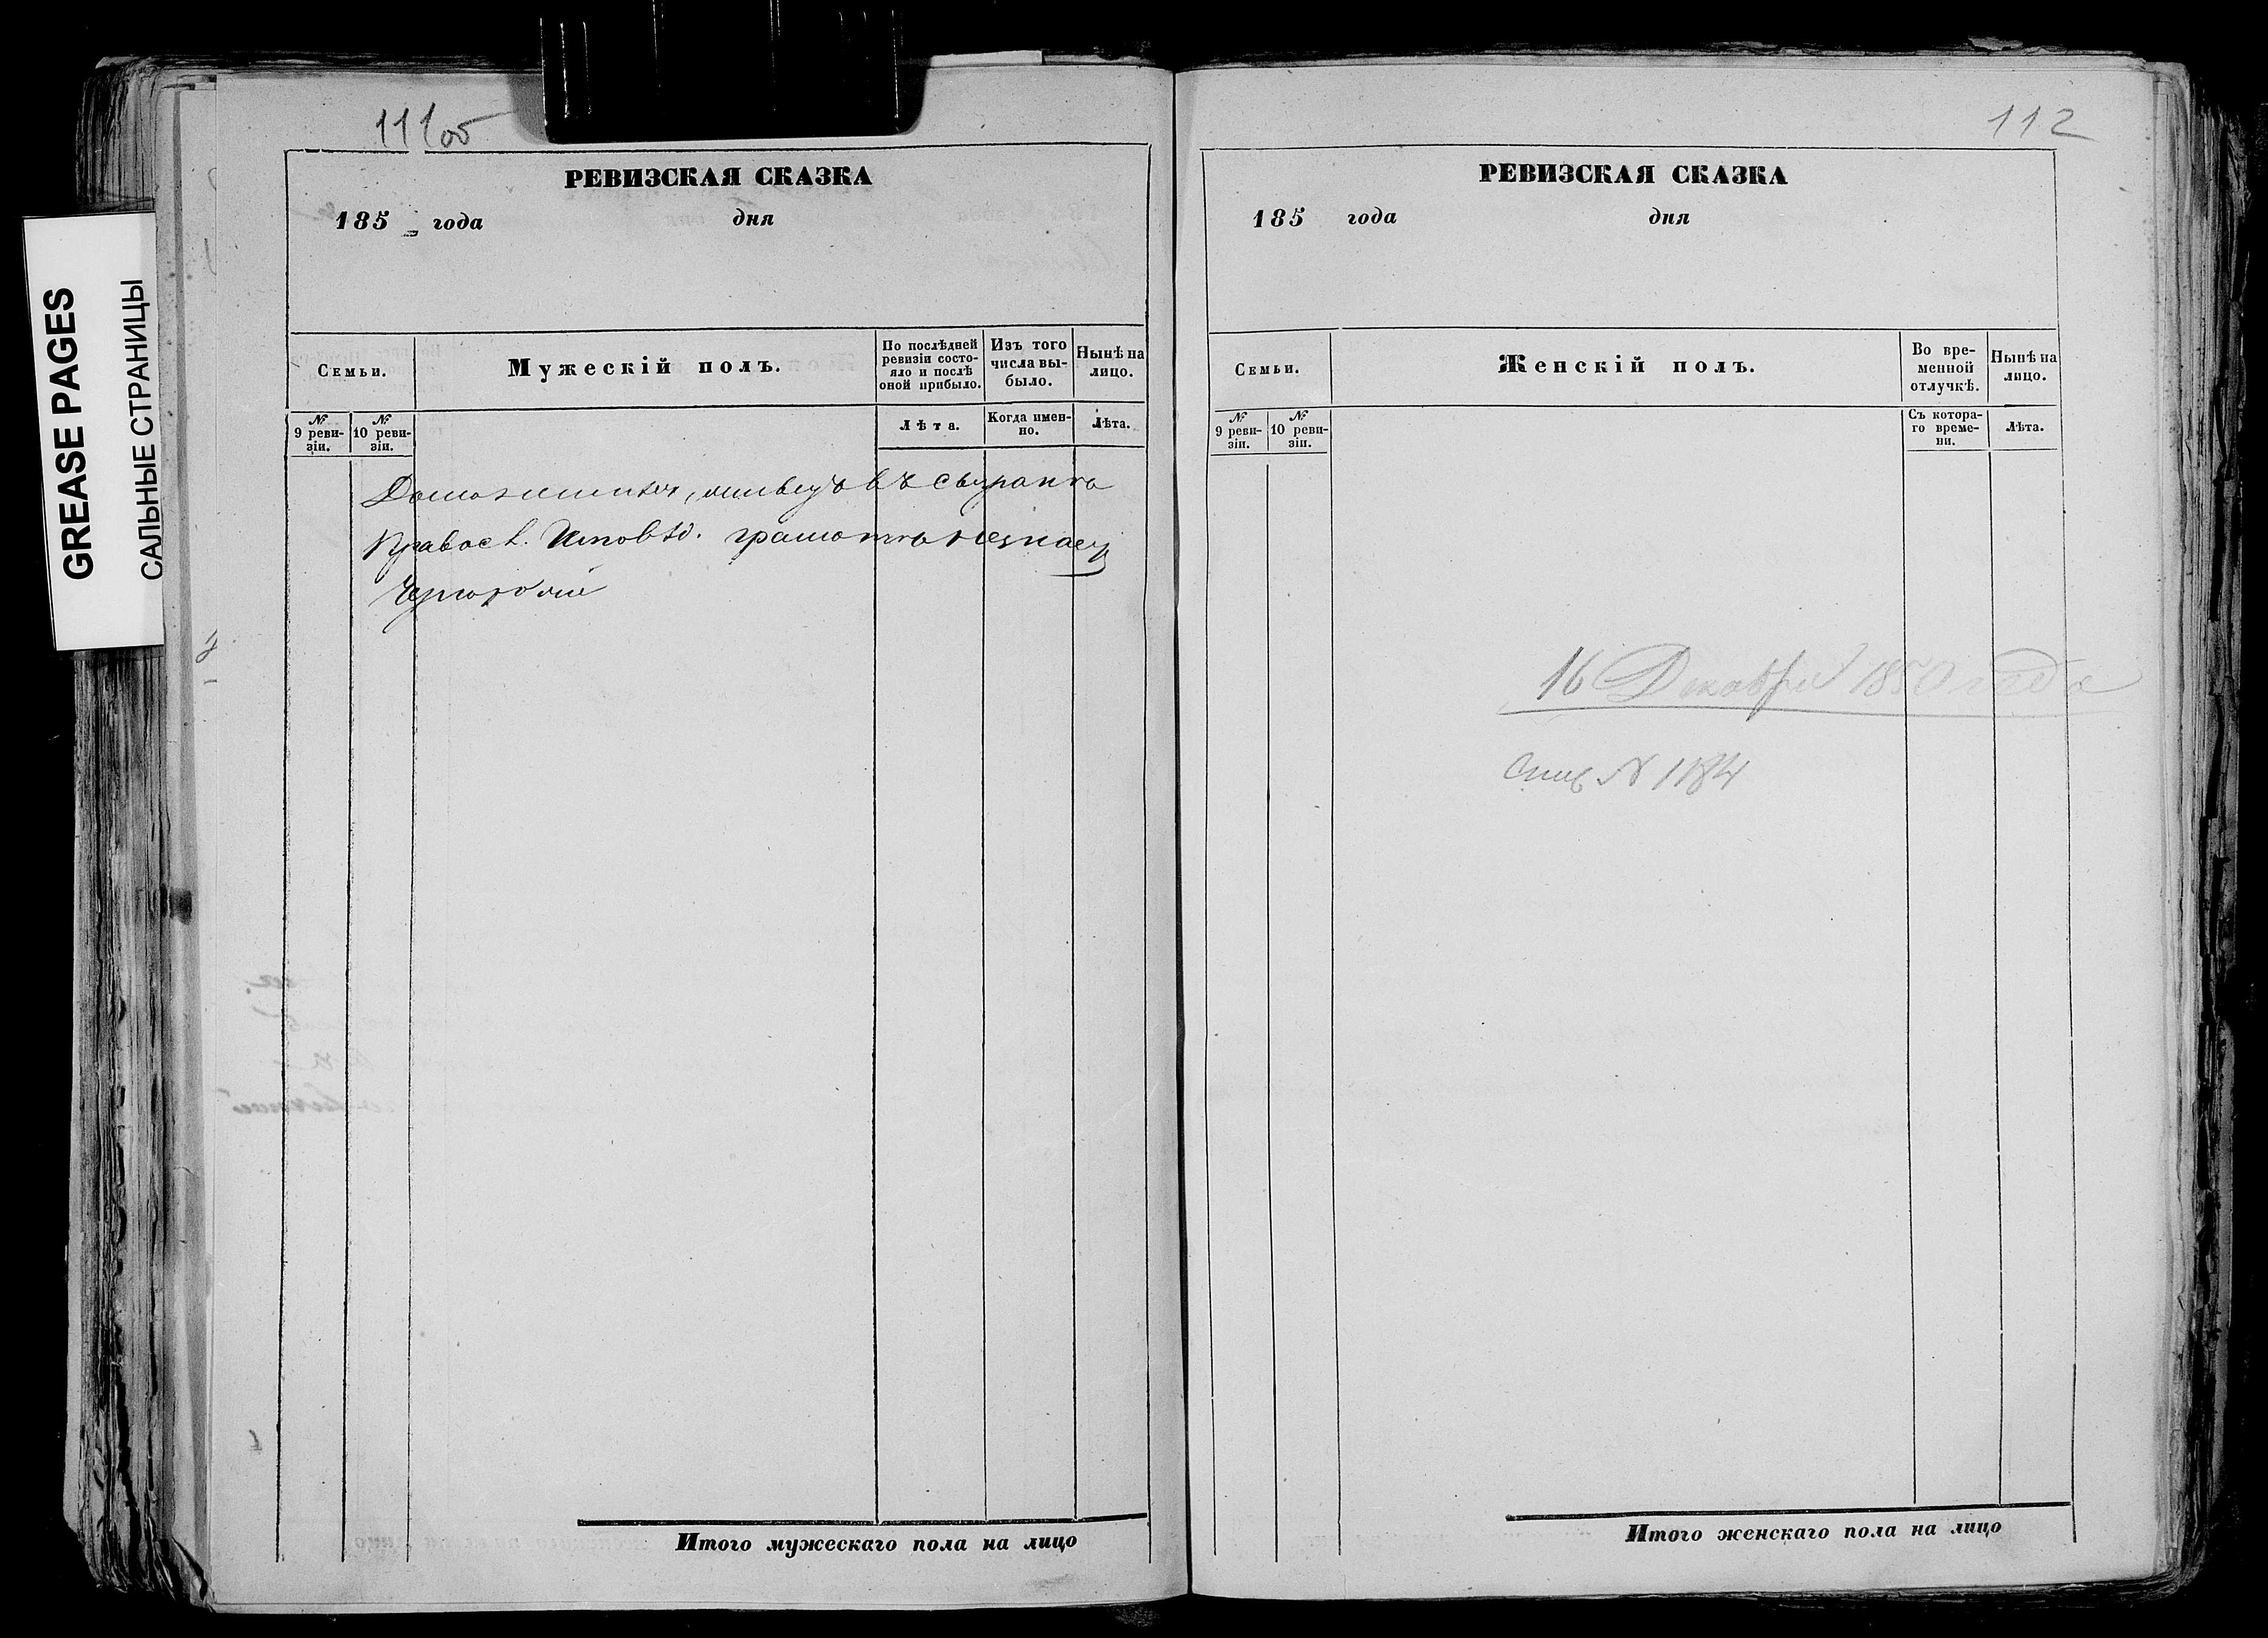 GREASE PAGES
САЛЬНЫЕ СТРАНИЦЫ
111об
РЕВИЗСКАЯ СКАЗКА
185 года дня
Семьи.
Мужескій полъ.
По послѣдней ревизіи состояло и послѣ оной прибыло.
Изъ того числа выбыло.
Нынѣ на лицо.
№ 9 ревизіи.
№ 10 ревизіи.
Лѣта.
Когда именно.
Лѣта.
въ
Правос. Исповѣд. грамотѣ незнаетъ
Итого мужескаго пола на лицо
112
РЕВИЗСКАЯ СКАЗКА
185 года дня
Семьи.
Женскій полъ.
Во временной отлучкѣ.
Нынѣ на лицо.
№ 9 ревизіи.
№ 10 ревизіи.
Съ котораго времени.
Лѣта.
16 Декабря 1850 года
№ 1184
Итого женскаго пола на лицо